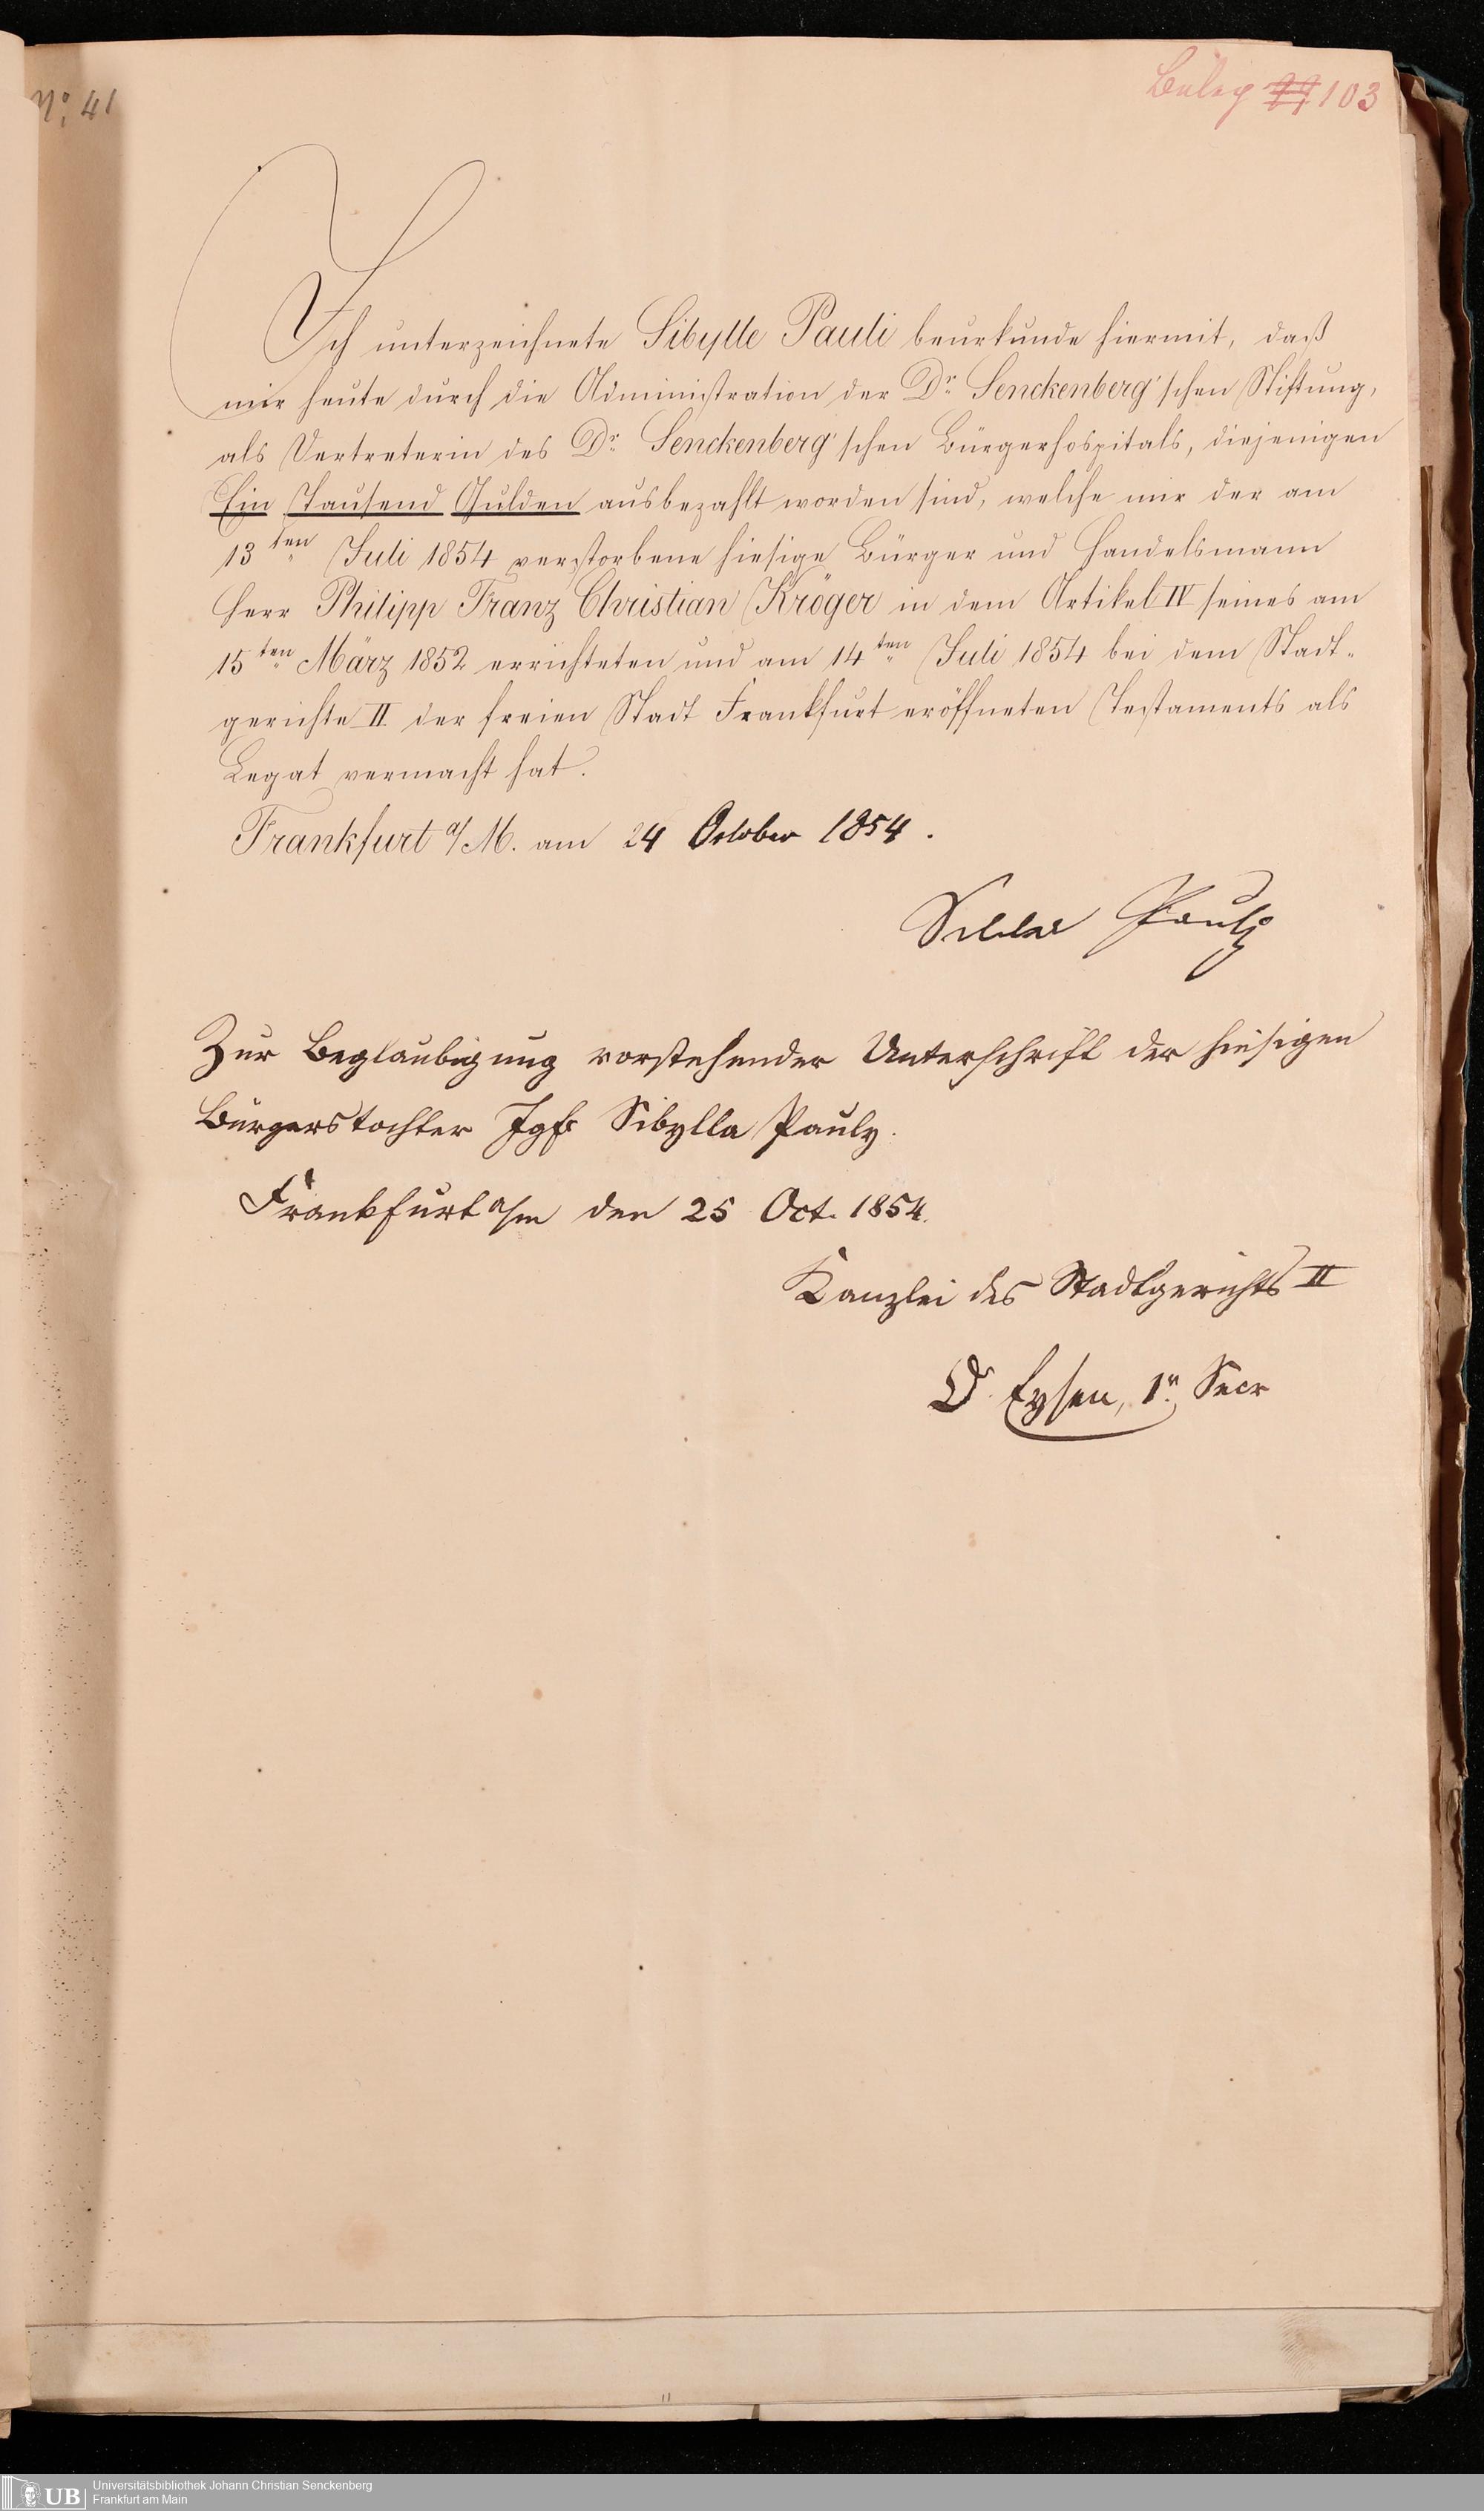 No. 41
Beleg 103
Ich unterzeichnete Sibylle Pauli beurkunde hiermit, daß
mir heute durch die Administration der Dr. Senckenberg'schen Stiftung,
als Vertreterin des Dr. Senckenberg'schen Bürgerhospitals, diejenigen
Ein Tausend Gulden ausbezahlt worden sind, welche mir der am
13ten Juli 1854 verstorbene hiesige Bürger und Handelsmann
Herr Philipp Franz Christian Kröger in dem Artikel IV seines am
15ten März 1852 errichteten und am 14ten Juli 1854 bei dem Stadt-
gerichte II. der freien Stadt Frankfurt eröffneten Testaments als
Legat vermacht hat.
Frankfurt a/M. am 24 October 1854.
Pauly
Zur Beglaubigung vorstehender Unterschrift der hiesigen
Bürgerstochter Jgfr Sibylla Pauly.
Frankfurt a/m den 25 Oct. 1854.
Kanzlei des Stadtgerichts II
Dr. Eysen, 1r. Secr
UB
Universitätsbibliothek Johann Christian Senckenberg
Frankfurt am Main